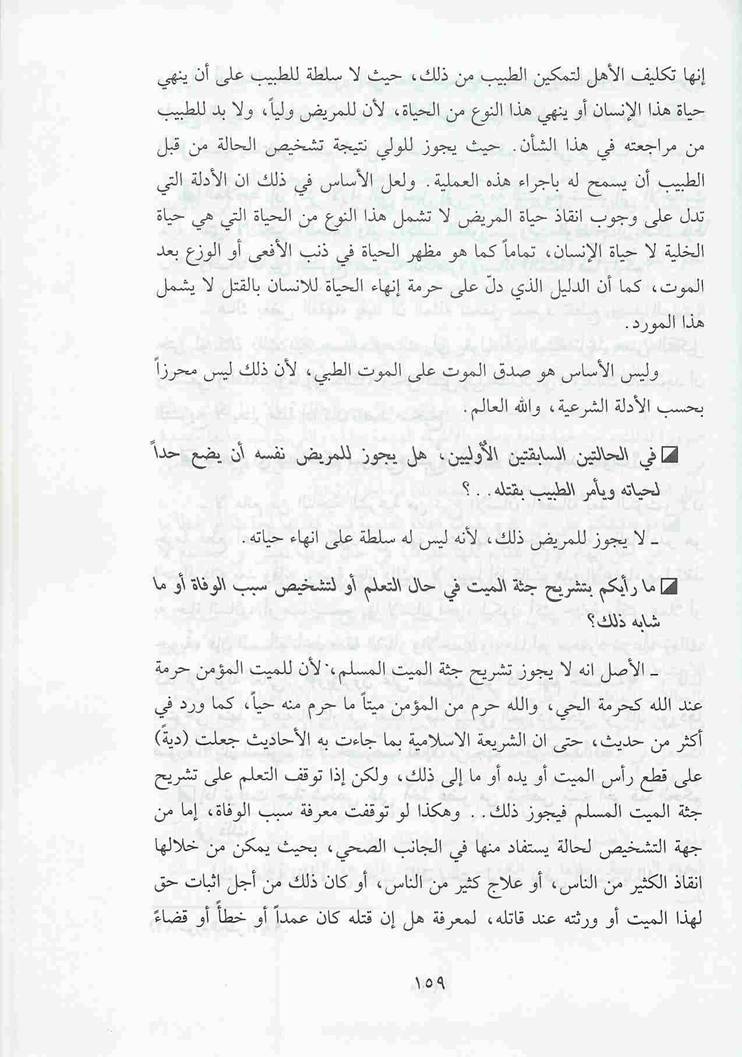 إنها تكليف الأهل لتمكين الطبيب من ذلك، حيث لا سلطة للطبيب على أن ينهي
حياة هذا الإنسان أو ينهي هذا النوع من الحياة، لأن للمريض ولياً، ولا بد للطبيب
من مراجعته في هذا الشأن. حيث يجوز للولي نتيجة تشخيص الحالة من قبل
الطبيب أن يسمح له باجراء هذه العملية. ولعل الأساس في ذلك ان الأدلة التي
تدل على وجوب انقاذ حياة المريض لا تشمل هذا النوع من الحياة التي هي حياة
الخلية لا حياة الإنسان، تماماً كما هو مظهر الحياة في ذنب الأفعى أو الوزع بعد
الموت، كما أن الدليل الذي دلّ على حرمة إنهاء الحياة للانسان بالقتل لا يشمل
هذا المورد.
وليس الأساس هو صدق الموت على الموت الطبي، لأن ذلك ليس محرزاً
بحسب الأدلة الشرعية، والله العالم.
في الحالتين السابقتين الأوليين، هل يجوز للمريض نفسه أن يضع حداً
لحياته ويأمر الطبيب بقتله..؟
ـ لا يجوز للمريض ذلك، لأنه ليس له سلطة على انهاء حياته.
ما رأيكم بتشريح جثة الميت في حال التعلم أو لتشخيص سبب الوفاة أو ما
شابه ذلك؟
ـ الأصل انه لا يجوز تشريح جثة الميت المسلم، لأن للميت المؤمن حرمة
عند الله كحرمة الحي، والله حرم من المؤمن ميتاً ما حرم منه حياً، كما ورد في
أكثر من حديث، حتى ان الشريعة الاسلامية بما جاءت به الأحاديث جعلت (ديةً)
على قطع رأس الميت أو يده أو ما إلى ذلك، ولكن إذا توقف التعلم على تشريح
جثة الميت المسلم فيجوز ذلك.. وهكذا لو توقفت معرفة سبب الوفاة، إما من
جهة التشخيص لحالة يستفاد منها في الجانب الصحي، بحيث يمكن من خلالها
انقاذ الكثير من الناس، أو علاج كثير من الناس، أو كان ذلك من أجل اثبات حق
لهذا الميت أو ورثته عند قاتله، لمعرفة هل إن قتله كان عمداً أو خطأً أو قضاءً
١٥٩